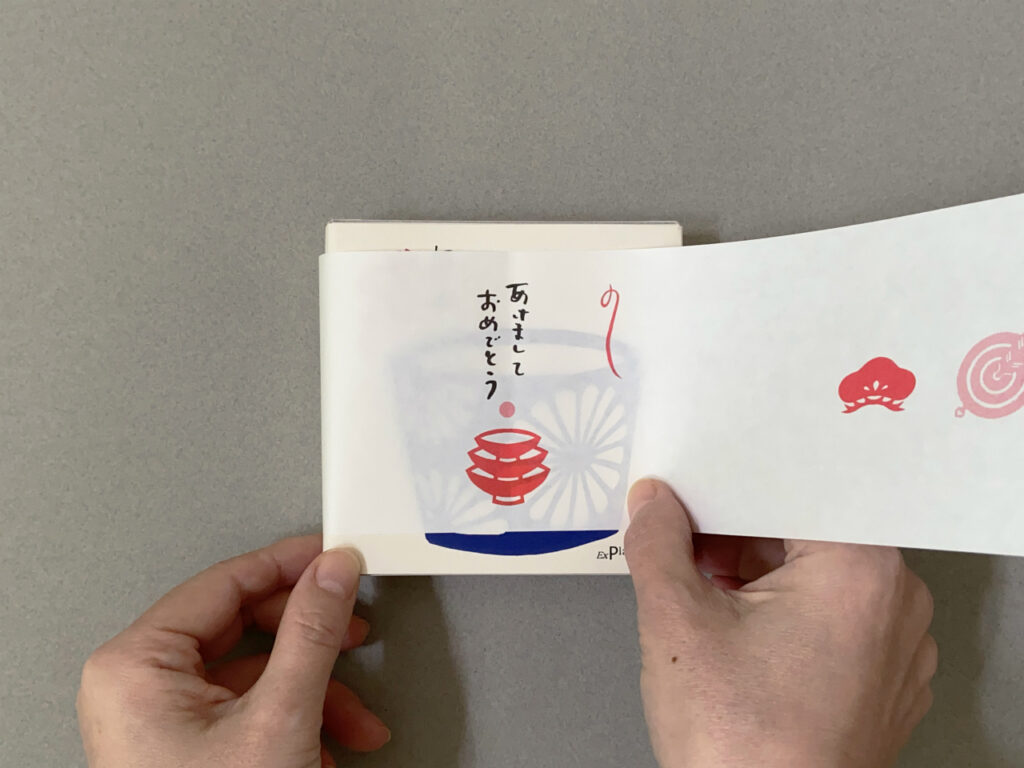 あけまして
おめでとう
の
ExPla